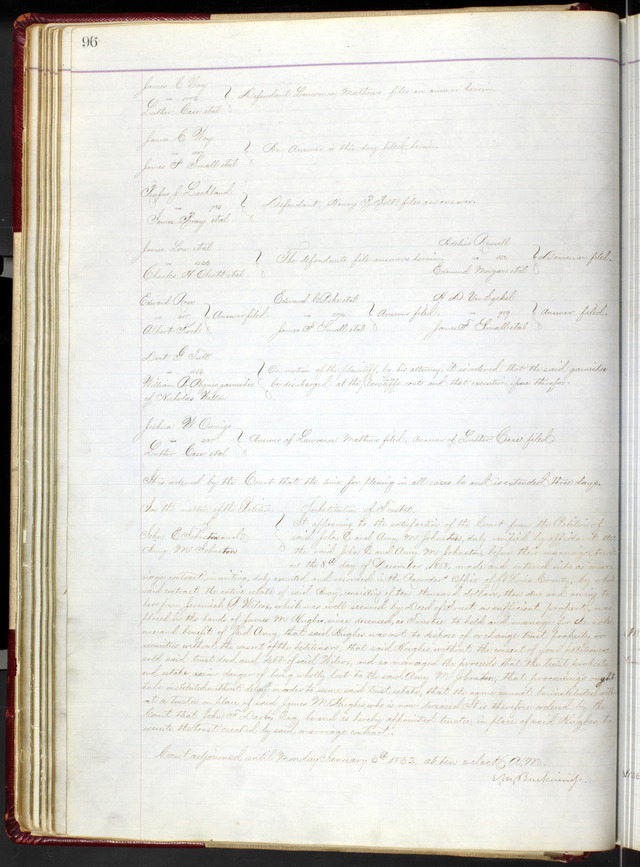 96
James C Way
vs
Luther Case etal } Defendant Lawrence Mathews files an answer herein
James C Way
vs
James F Small etal } An Answer is this day filed herein
Rufus J Lackland
vs
etal } Defendant, Henry files an answer.
James etal
vs
Charles H etal } The defendants file answers herein
Russell
vs
Edmund Morgan etal } Demurrer filed.
Edward
vs
Albert } Answer filed.
Edward etal
vs
James F Small etal } Answer filed.
H D Van Syckel
vs
James F Small etal } Answer filed.
G Tutt
vs
William A garnishee
of Nicholas
On motion of the plaintiff, by his attorney it is ordered that the said garnishee
be discharged at the plaintiffs costs and that execution issue therefor.
Joshua W
vs
Luther Case etal } Answer of Lawrence Mathews filed. Answer of Luther Case filed
It is ordered by the Court that the time for pleading in all cases be and is extended three days.
In the matter of the Petition of
John E Johnston and
Amy M Johnston
Substitution of Trustee.
It appearing to the satisfaction of the Court from the Petition of
said John E and Amy M Johnston, duly verified by affidavit that
the said John E and Amy M Johnston, before their marriage,
on the 8th day of December, made and entered into a mar-
riage contract, in writing, duly executed and recorded in the Recorder's Office of St Louis County, by which
said contract the entire estate of said Amy, consisting of ten thousand dollars, then due and owing to
her from Jeremiah Wilcox, which was well secured by Deed of Trust on sufficient property, was
placed in the hands of James M Hughes, since deceased, as Trustee to hold and manage for the sole
use and benefit of said Amy, that said Hughes was not to dispose of or change trust property, or
securities without the assent of the petitioners, that said Hughes without the consent of your petitioners
sold said trust deed and debt of said Wilcox, and so managed the proceeds that the trust property
and estate in danger of being wholly lost to the said Amy M Johnston, that proceedings ought
to be instituted without delay in order to secure said trust estate, that the same cannot be instituted with-
out a trustee in place of said James M Hughes, who is now deceased. It is therefore ordered by the
Court that John F Darby Esq be and is hereby appointed trustee, in place of said Hughes to
execute the trust created by said marriage contract.
Court adjourned until Monday January 6th 1862 at ten o'clock A.M.